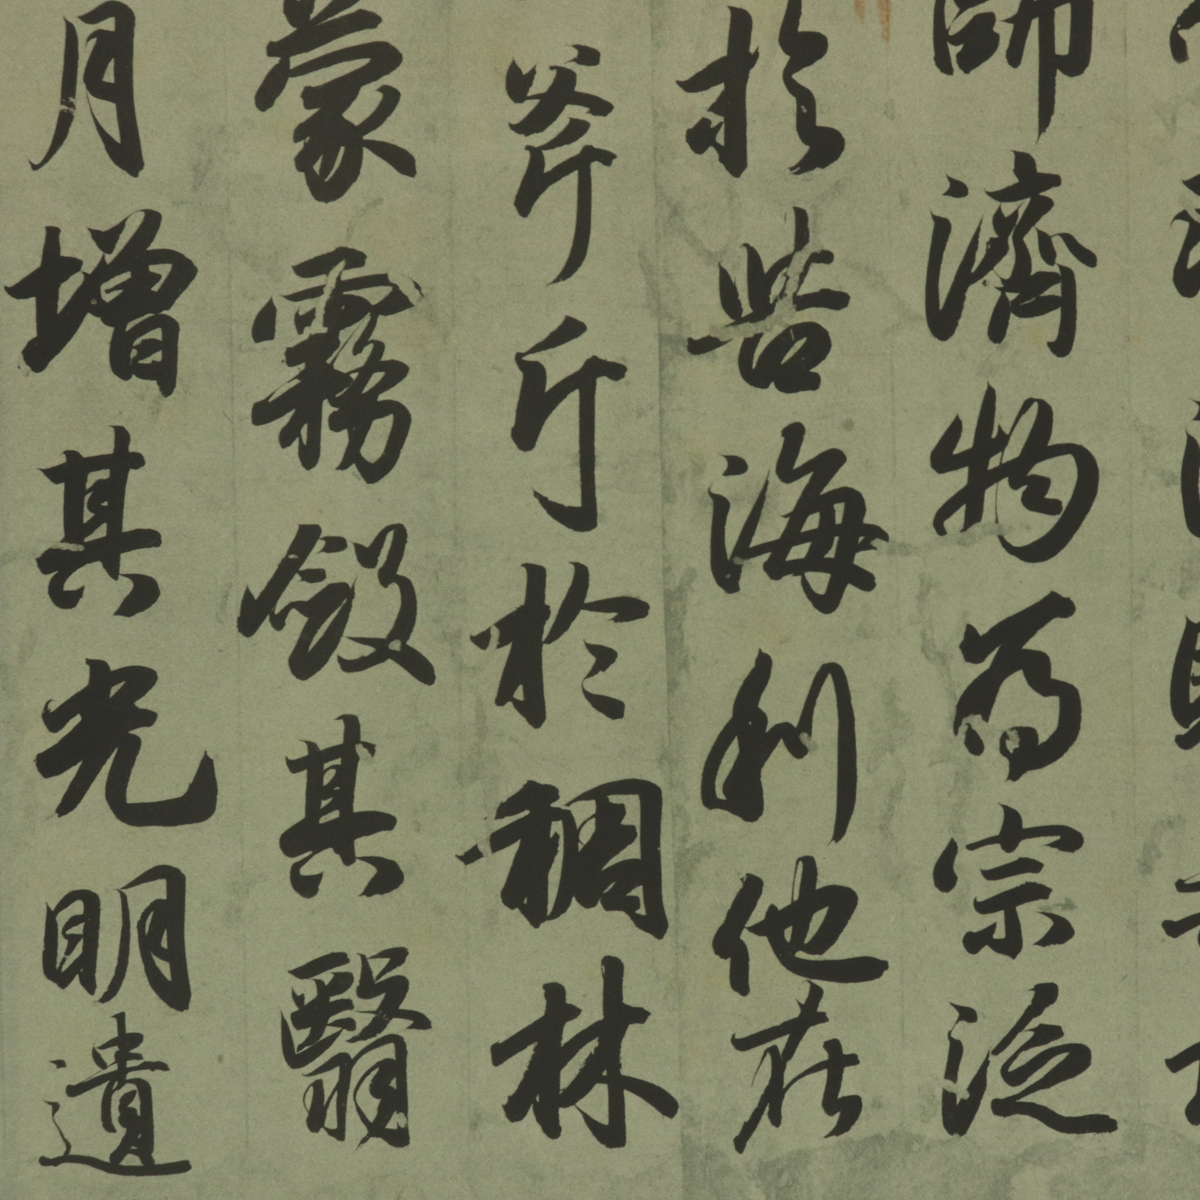 師濟物為宗泛
於苦海利他在
斧斤於稠林
蒙霧斂其翳
月增其光明遺